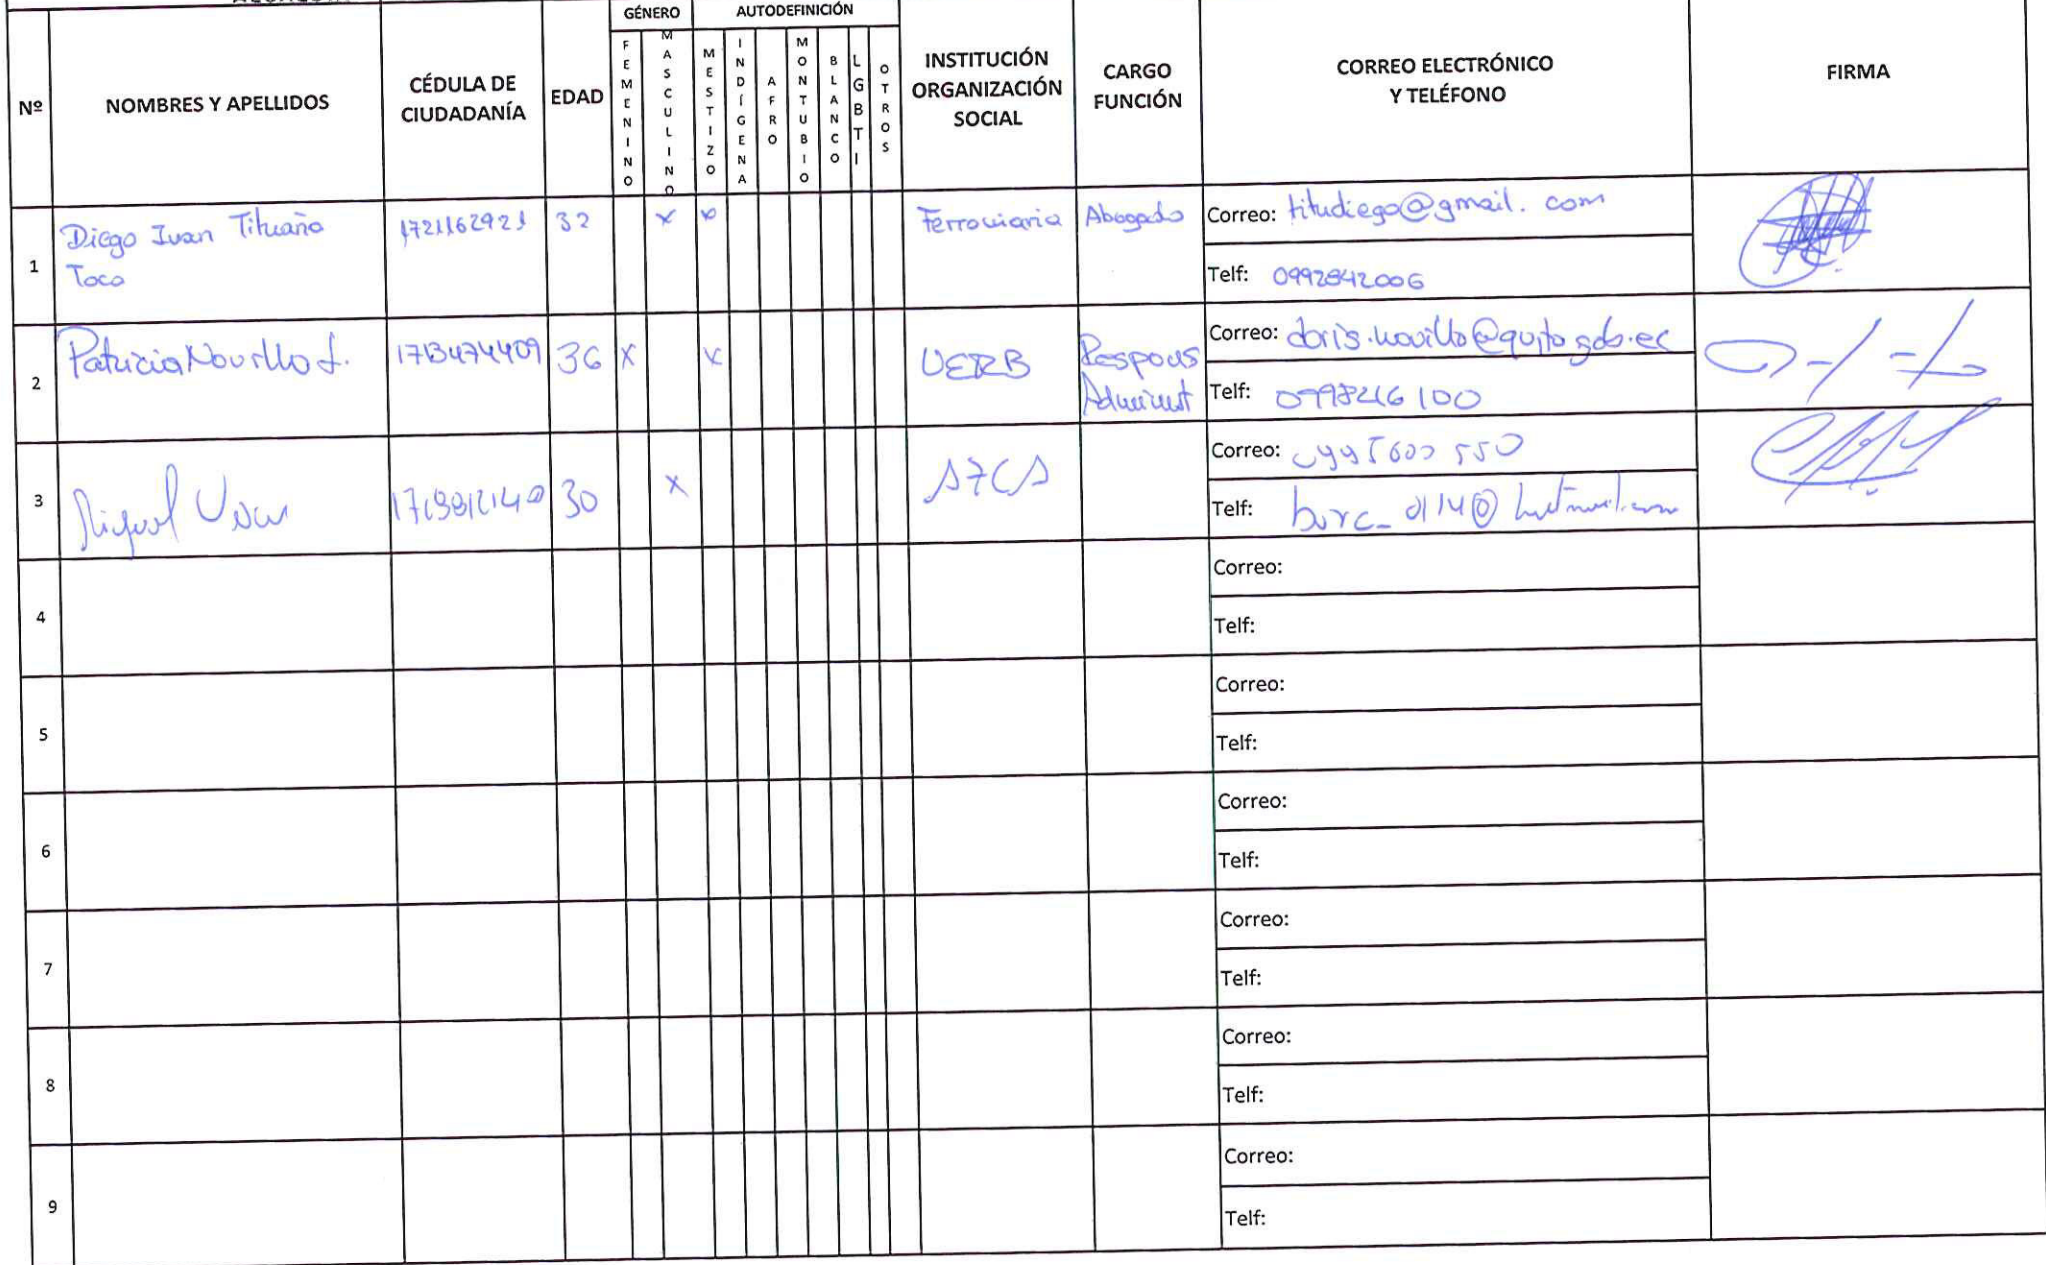 GÉNERO AUTODEFINICIÓN
Nº NOMBRES Y APELLIDOS CÉDULA DE CIUDADANÍA EDAD FEMENINO MASCULINO MESTIZO INDÍGENA AFRO MONTUBIO BLANCO LGBTI OTROS INSTITUCIÓN ORGANIZACIÓN SOCIAL CARGO FUNCIÓN CORREO ELECTRÓNICO Y TELÉFONO FIRMA
1 Diego Ivan Tituaña Toco 1721162921 32 x x Ferroviaria Abogado Correo: titudiego@gmail.com
Telf: 0992842006
2 Patricia Novillo L. 1713474409 36 x x UERB Respons Administ Correo: doris.novillo@quito.gob.ec
Telf: 0998216100
3 Miguel 30 x Correo:
Telf:
4 Correo:
Telf:
5 Correo:
Telf:
6 Correo:
Telf:
7 Correo:
Telf:
8 Correo:
Telf:
9 Correo:
Telf: